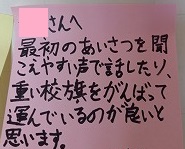 さんへ
最初のあいさつを聞
こえやすい声で話したり、
重い校旗をがんばって
運んでいるのが良いと
思います。